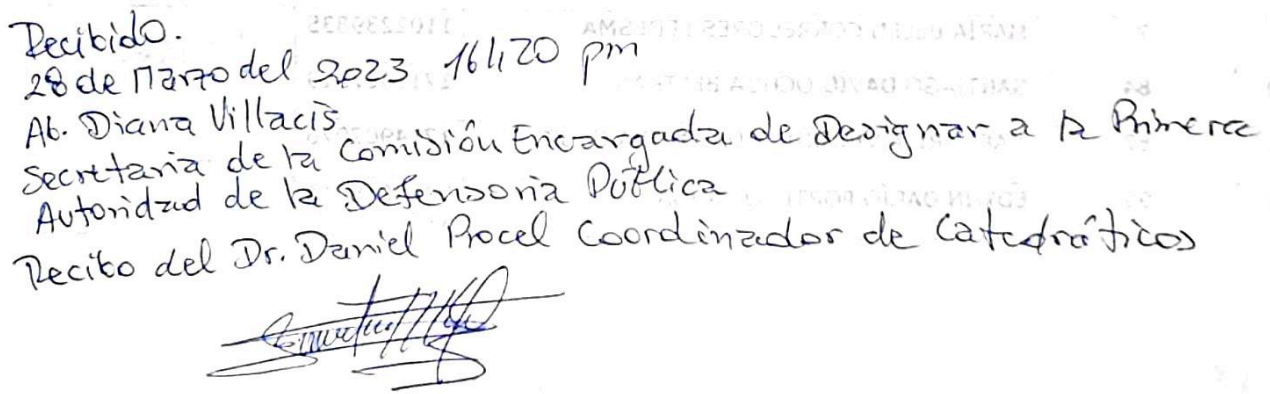 Recibido.
28 de Marzo del 2023 16h20 pm
Ab. Diana Villacis
Secretaria de la Comisión Encargada de Designar a la Primera
Autoridad de la Defensoria Pública
Recibo del Dr. Daniel Procel Coordinador de Catedráticos